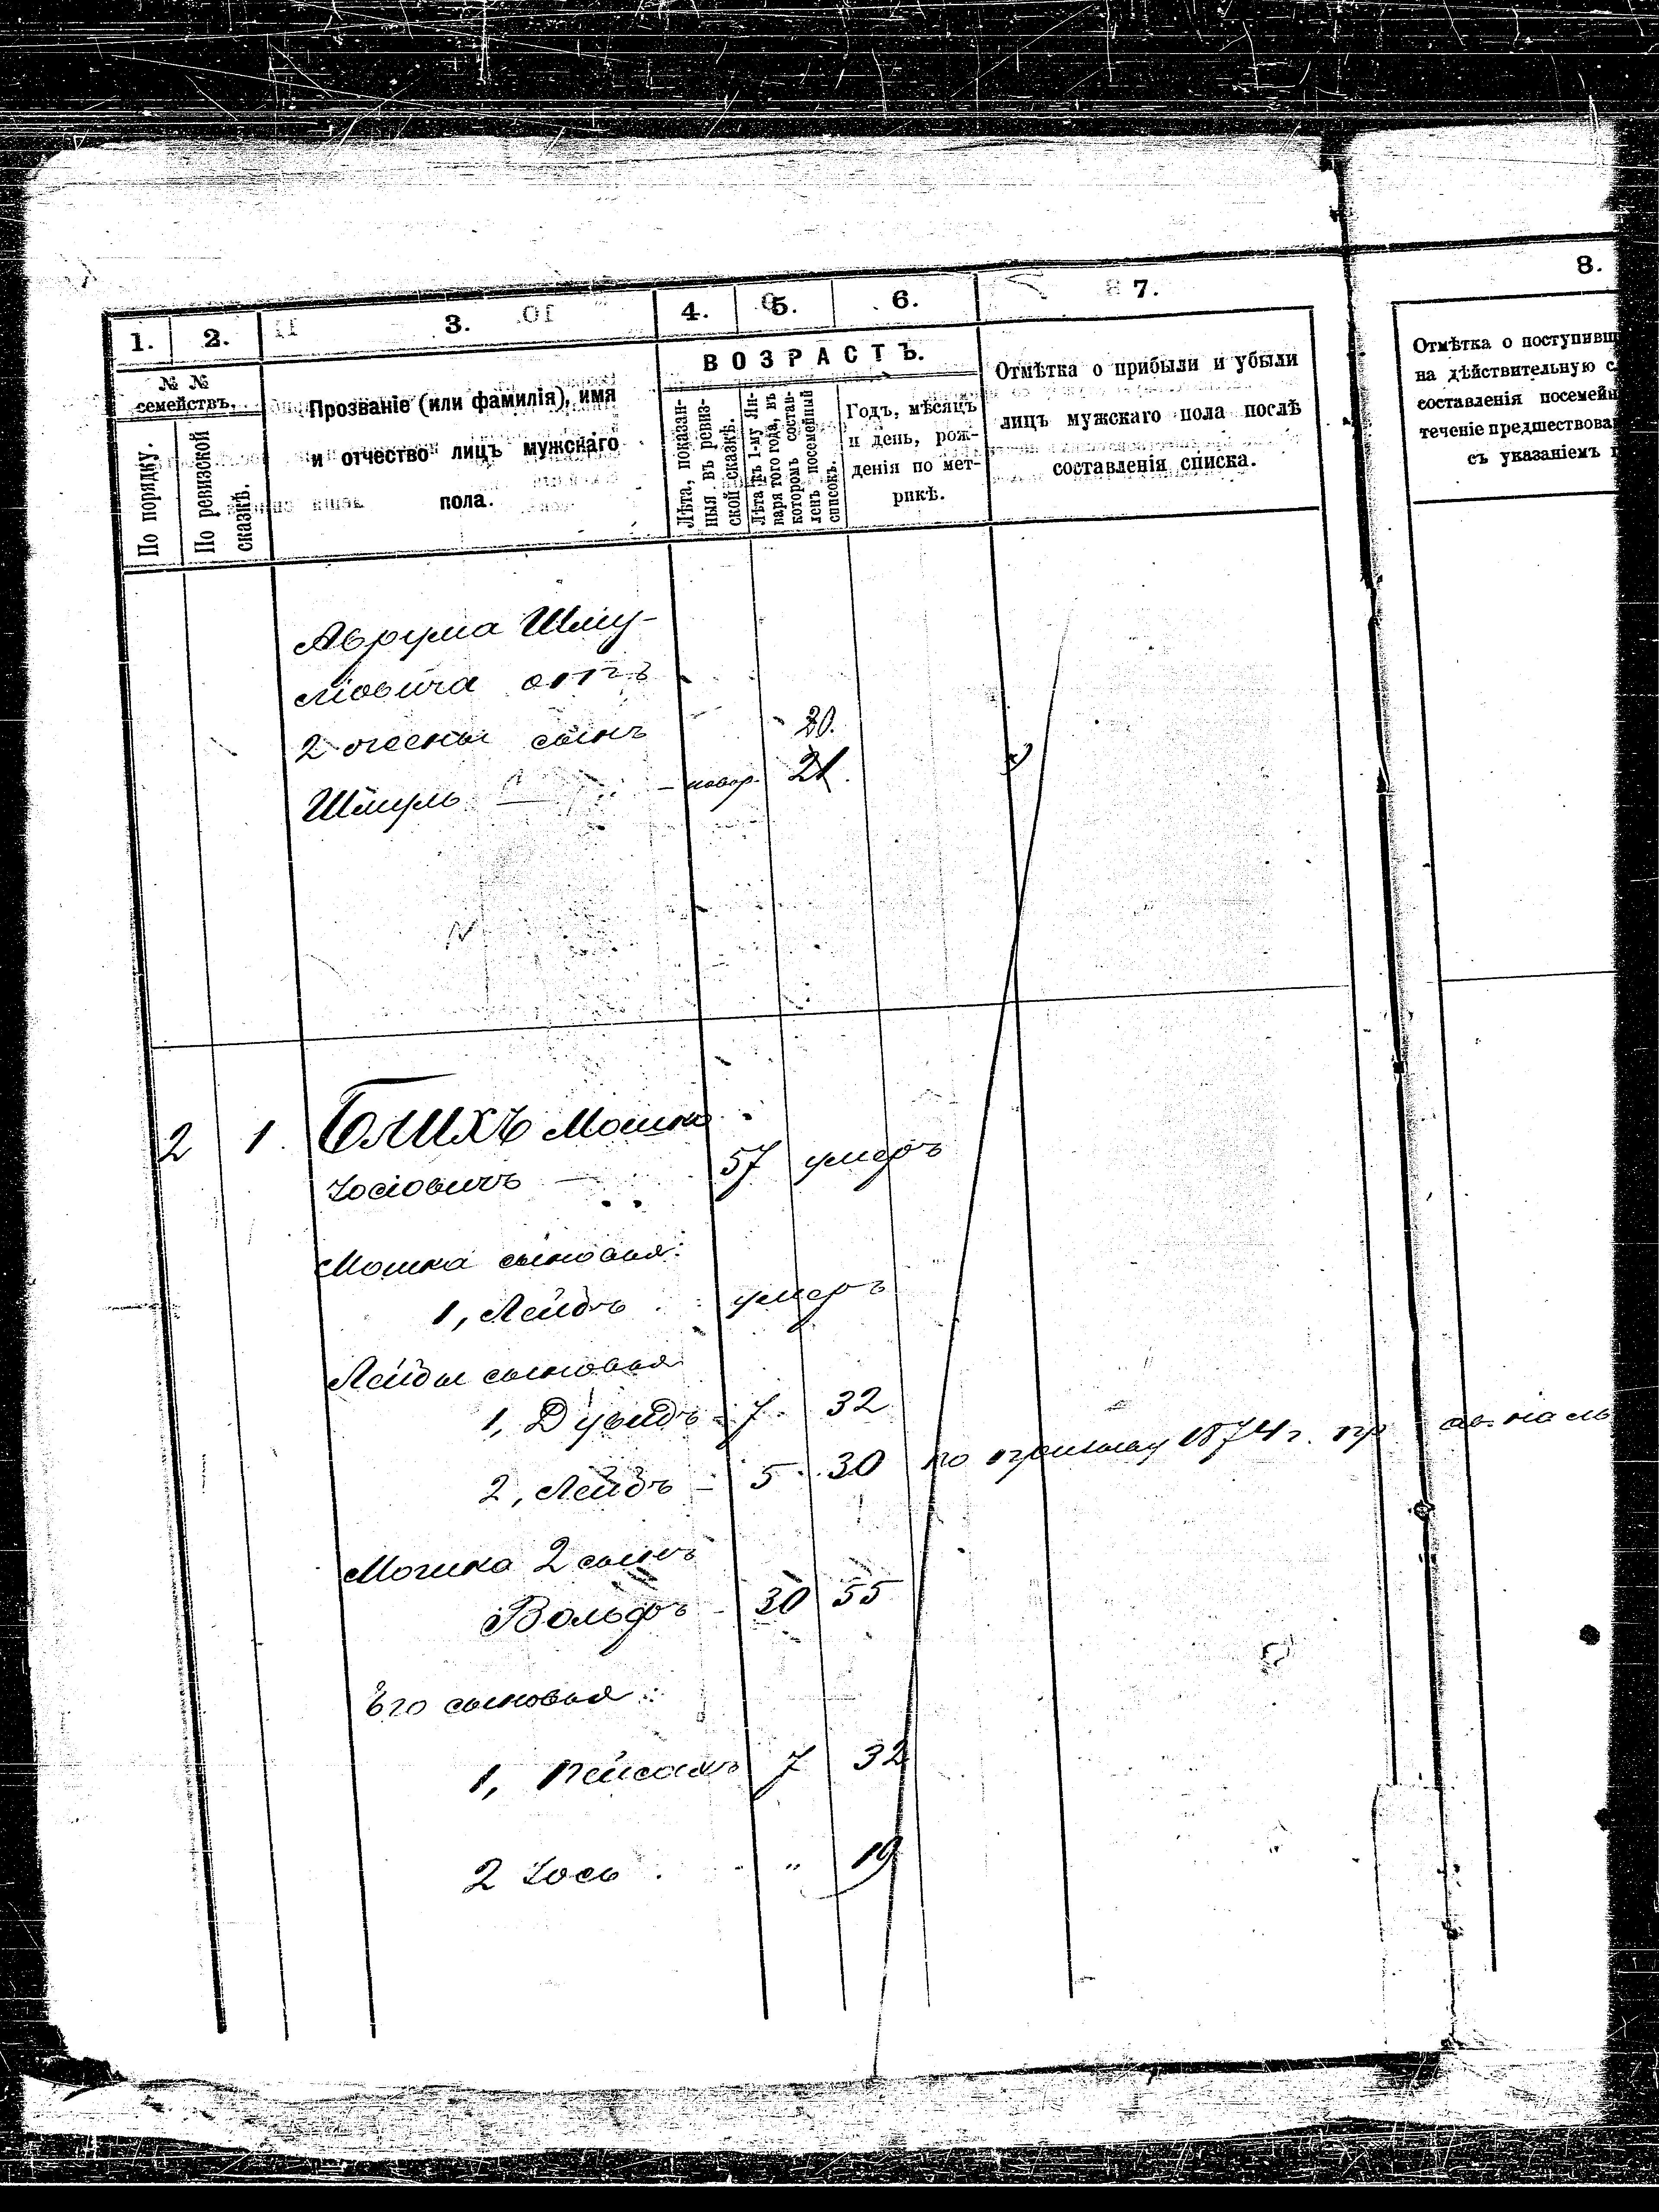 1. 2. 3. 4. 5. 6. 7. 8.
№ №
семействъ.
По порядку.
По ревизской
сказкѣ.
Прозваніе (или фамилія), имя
и отчество лицъ мужскаго
пола.
ВОЗРАСТЪ.
Лѣта, показан-
ныя въ ревиз-
ской сказкѣ.
Лѣта къ 1-му Ян-
варя того года, въ
которомъ состав-
ленъ посемейный
списокъ.
Годъ, мѣсяцъ
и день, рож-
денія по мет-
рикѣ.
Отмѣтка о прибыли и убыли
лицъ мужскаго пола послѣ
составленія списка.
Отмѣтка о поступивш
на дѣйствительную с
составленія посемейн
теченіе предшествова
съ указаніемъ
Аврума Шму-
ліовича отъ
2 жены сынъ 20.
Шмуль - новор. 21.
2 1. Блихъ Мошко
Іосіовичъ 57 умеръ
Мошка сыновья:
1, Лейбъ умеръ
Лейбы сыновья
1, Дувидъ - 7. 32
2, Лейбъ - 5 30 по призыву 1874 г.
Мошка 2 сынъ
Вольфъ - 30 55
Его сыновья:
1, Пейсахъ 7 32
2 Іось . " 19